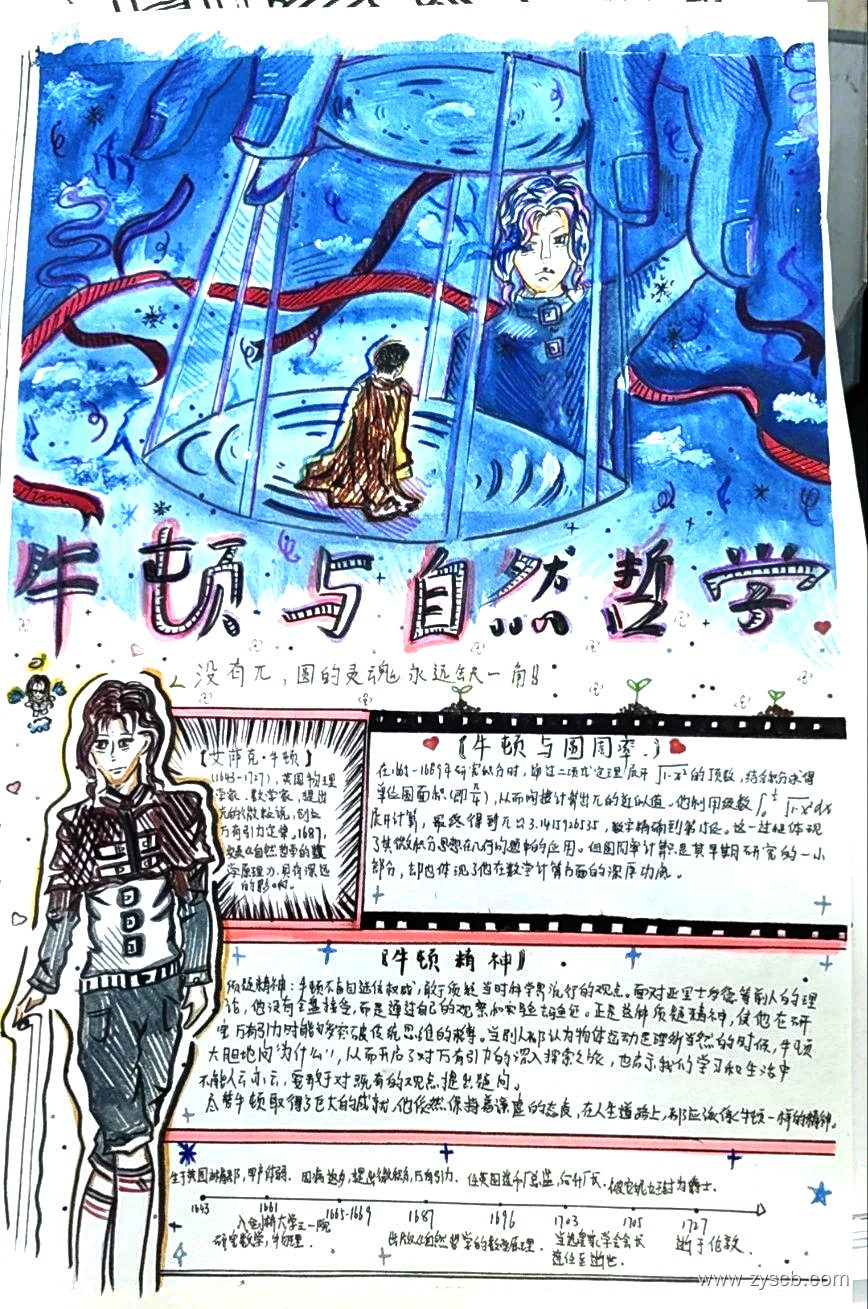 牛顿与自然哲学
没有π,圆的灵魂永远缺一角!!
【艾萨克·牛顿】
(1643-1727),英国物理
学家、数学家,提出
万有引力定律。1687,
发表《自然哲学的数
学原理》,具有深远
的影响。
【牛顿与圆周率】
在1665-1669年研究积分时,通过二项式定理展开√1-x²的
单位圆面积,从而间接计算出π的近似值。他利用级数
展开计算,最终得到π≈3.1415926535,数字精确到第
微积分思想在几何问题中的应用。但圆周率计算只是其早期研究的一小
部分,却也体现了他在数学计算方面的深厚功底。
【牛顿精神】
质疑精神:牛顿不盲目迷信权威,敢于质疑当时科学界流行的观点。面对亚里士多德等前人的理
论,他没有全盘接受,而是通过自己的观察和实验去验证。正是这种质疑精神,使他在研
究万有引力时能够突破传统思维的束缚。当别人都认为物体运动是理所当然的时候,牛顿
大胆地问"为什么",从而开启了对万有引力的深入探索之旅,也启示我们学习和生活中
不能人云亦云,要敢于对既有的观点提出疑问。
尽管牛顿取得了巨大的成就,他依然保持着谦虚的态度,在人生道路上,都应该像牛顿一样的精神。
生于英国 提出微积分,万有引力. 任英国造币厂总监, 被女王封为爵士.
1643 1661 1665-1669 1687 1696 1703 1705 1727
入剑桥大学三一院 出版《自然哲学的数学原理》. 当选皇家学会会长 逝于伦敦.
研究数学,物理. 连任至逝世.
www.zyscb.com